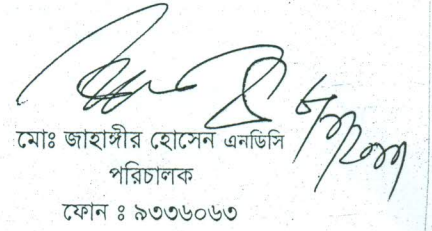 মোঃ জাহাঙ্গীর হোসেন এনডিসি
পরিচালক
ফোন ঃ ৯৩৩৬০৬৩